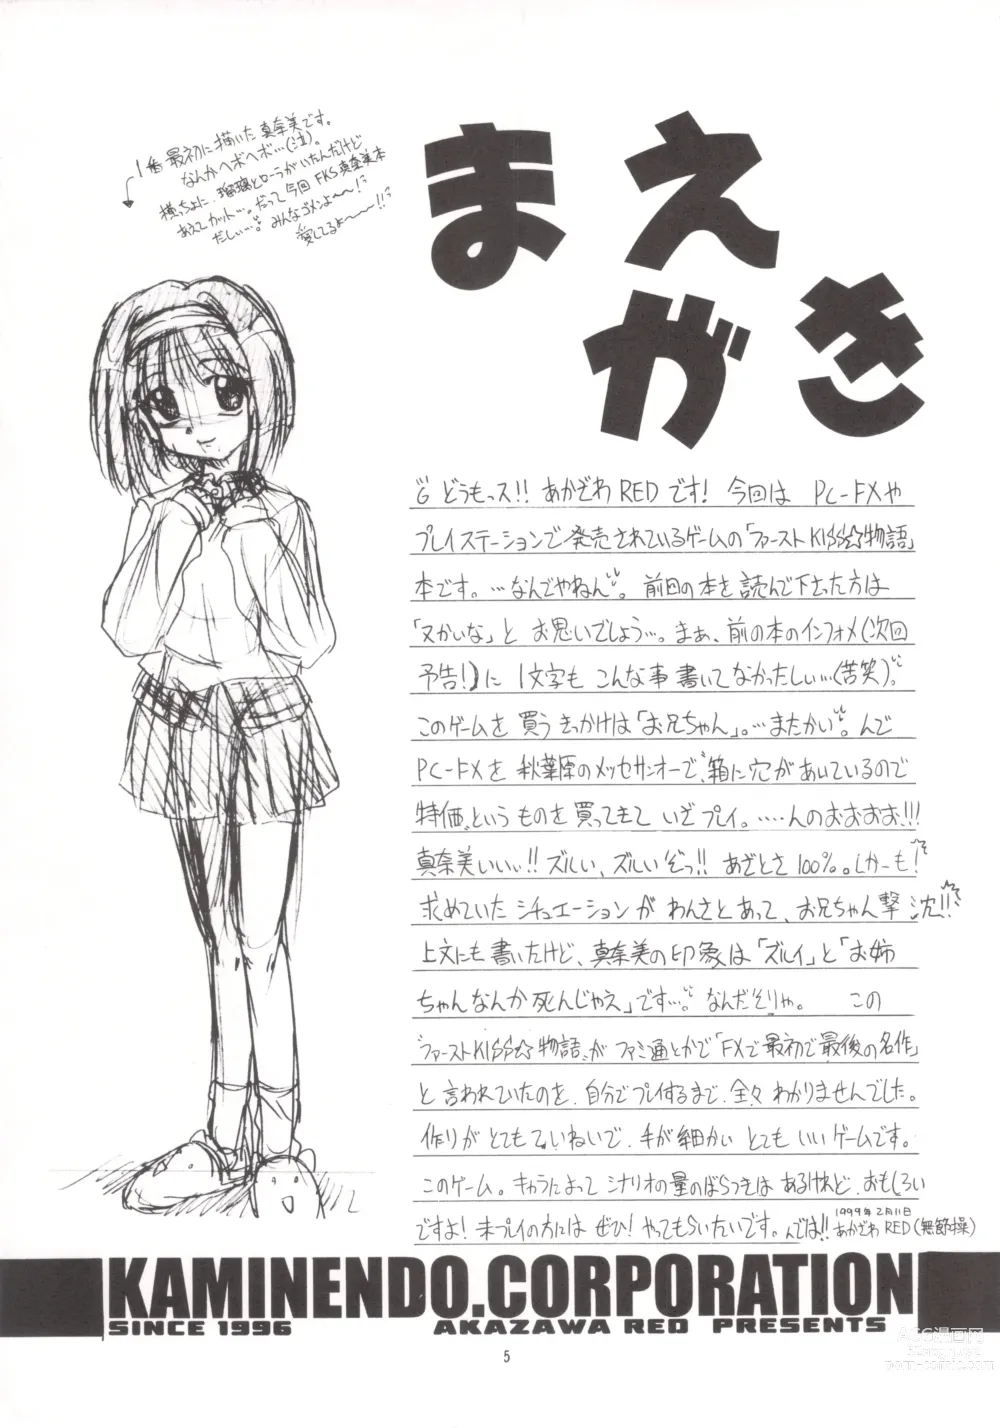 1番最初に描いた真奈美です。
なんかヘボヘボ…(泣)。
横っちょに、瑠璃とローラがいたんだけど
あえてカット…。だって今回FKS真奈美本
だしぃ…。みんなゴメンよ～～!?
愛してるよ～～～!!
まえ
がき
どうもっス!! あかざわREDです! 今回は PC-FXや
プレイステーションで発売されているゲームの「ファーストKISS☆物語」
本です。…なんでやねん。前回の本を読んで下さった方は
「又かいな」と お思いでしょう…。まぁ、前の本のインフォメ(次回
予告!)に 1文字も こんな事書いてなかったしぃ…(苦笑)。
このゲームを買うきっかけは「お兄ちゃん」。…またかい。んで
PC-FXを 秋葉原のメッセサンオーで、箱に穴があいているので
特価、という ものを買ってきて いざプレイ。……んのおおおお!!!
真奈美いいぃ!! ズルい、ズルいぞっ!! あざとさ100%。しかーも!
求めていた シチュエーションが わんさとあって、お兄ちゃん撃沈!!
上文にも書いたけど、真奈美の印象は「ズルイ」と「お姉
ちゃんなんか死んじゃえ」です…。なんだそりゃ。 この
ファーストKISS☆物語、が ファミ通とかで「FXで最初で最後の名作」
と言われていたのを、自分でプレイするまで、全々わかりませんでした。
作りがとてもていねいで、手が細かい とても いいゲームです。
このゲーム。キャラによって シナリオの量のばらつきは あるけれど、おもしろい
ですよ! 未プレイの方には ぜひ! やってもらいたいです。んでは!!
1999年2月11日
あかざわRED(無節操)
KAMINENDO.CORPORATION
SINCE 1996 AKAZAWA RED PRESENTS
5
ACG漫画网
porn-comic.com